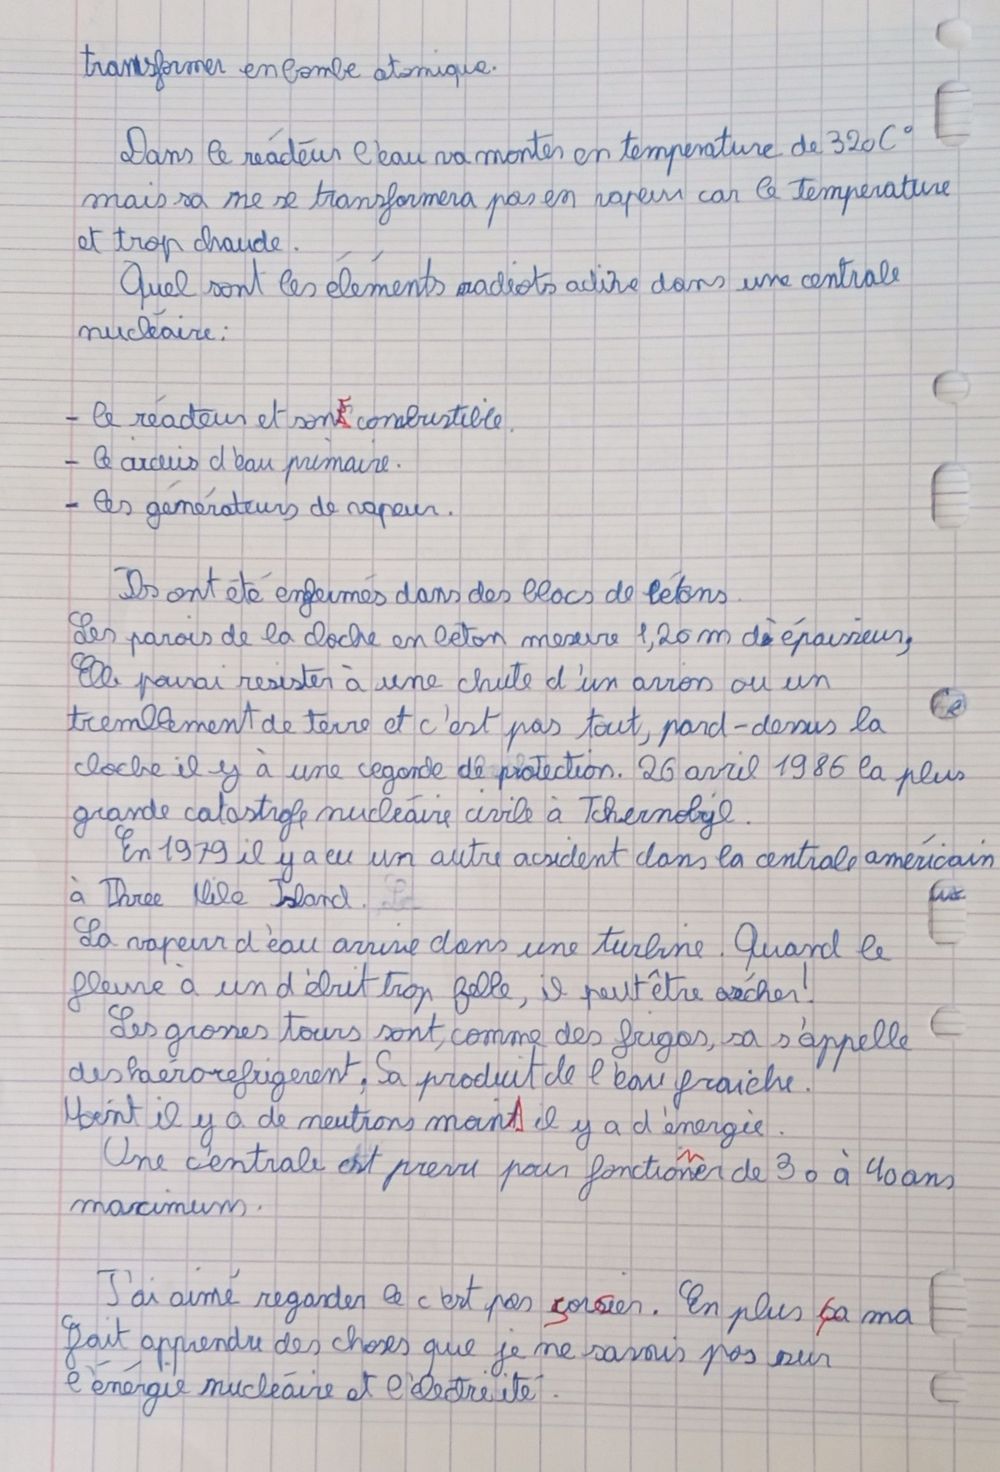 transformer en bombe atomique.
Dans le réacteur l'eau va monter en temperature de 320C°
mais sa ne se transformera pas en vapeur car la temperature
et trop chaude.
Quel sont les élements radiots active dans une centrale
nucléaire:
- le réacteur et sont combustible.
- le circuis d'eau primaire.
- les générateurs de vapeur.
Ils ont été enfermés dans des blocs de bétons.
Les parois de la cloche en béton mesure 1,20 m de épaisseur,
Elle pourai resister à une chute d'un avion ou un
tremblement de terre et c'est pas tout, pard-dessus la
cloche il y à une cegonde de protection. 26 avril 1986 la plus
grande catastrofe nucléaire civile à Tchernobyl.
En 1979 il y a eu un autre acsident dans la centrale américain
à Three Mile Island.
La vapeur d'eau arrive dans une turbine. Quand le
fleuve à un débit trop faible, il peut être sécher!
Les grosses tours sont, comme des frigos, sa s'appelle
des haéro-refrigerent, Sa produit de l'eau fraiche.
Moint il y a de neutrons moint il y a d'énergie.
Une centrale est prevu pour fonctionner de 30 à 40 ans
maximum.
J'ai aimé regarder ce c'est pas sorsier. En plus ça ma
fait apprendre des choses que je ne savais pas sur
l'énergie nucléaire et l'électricité.